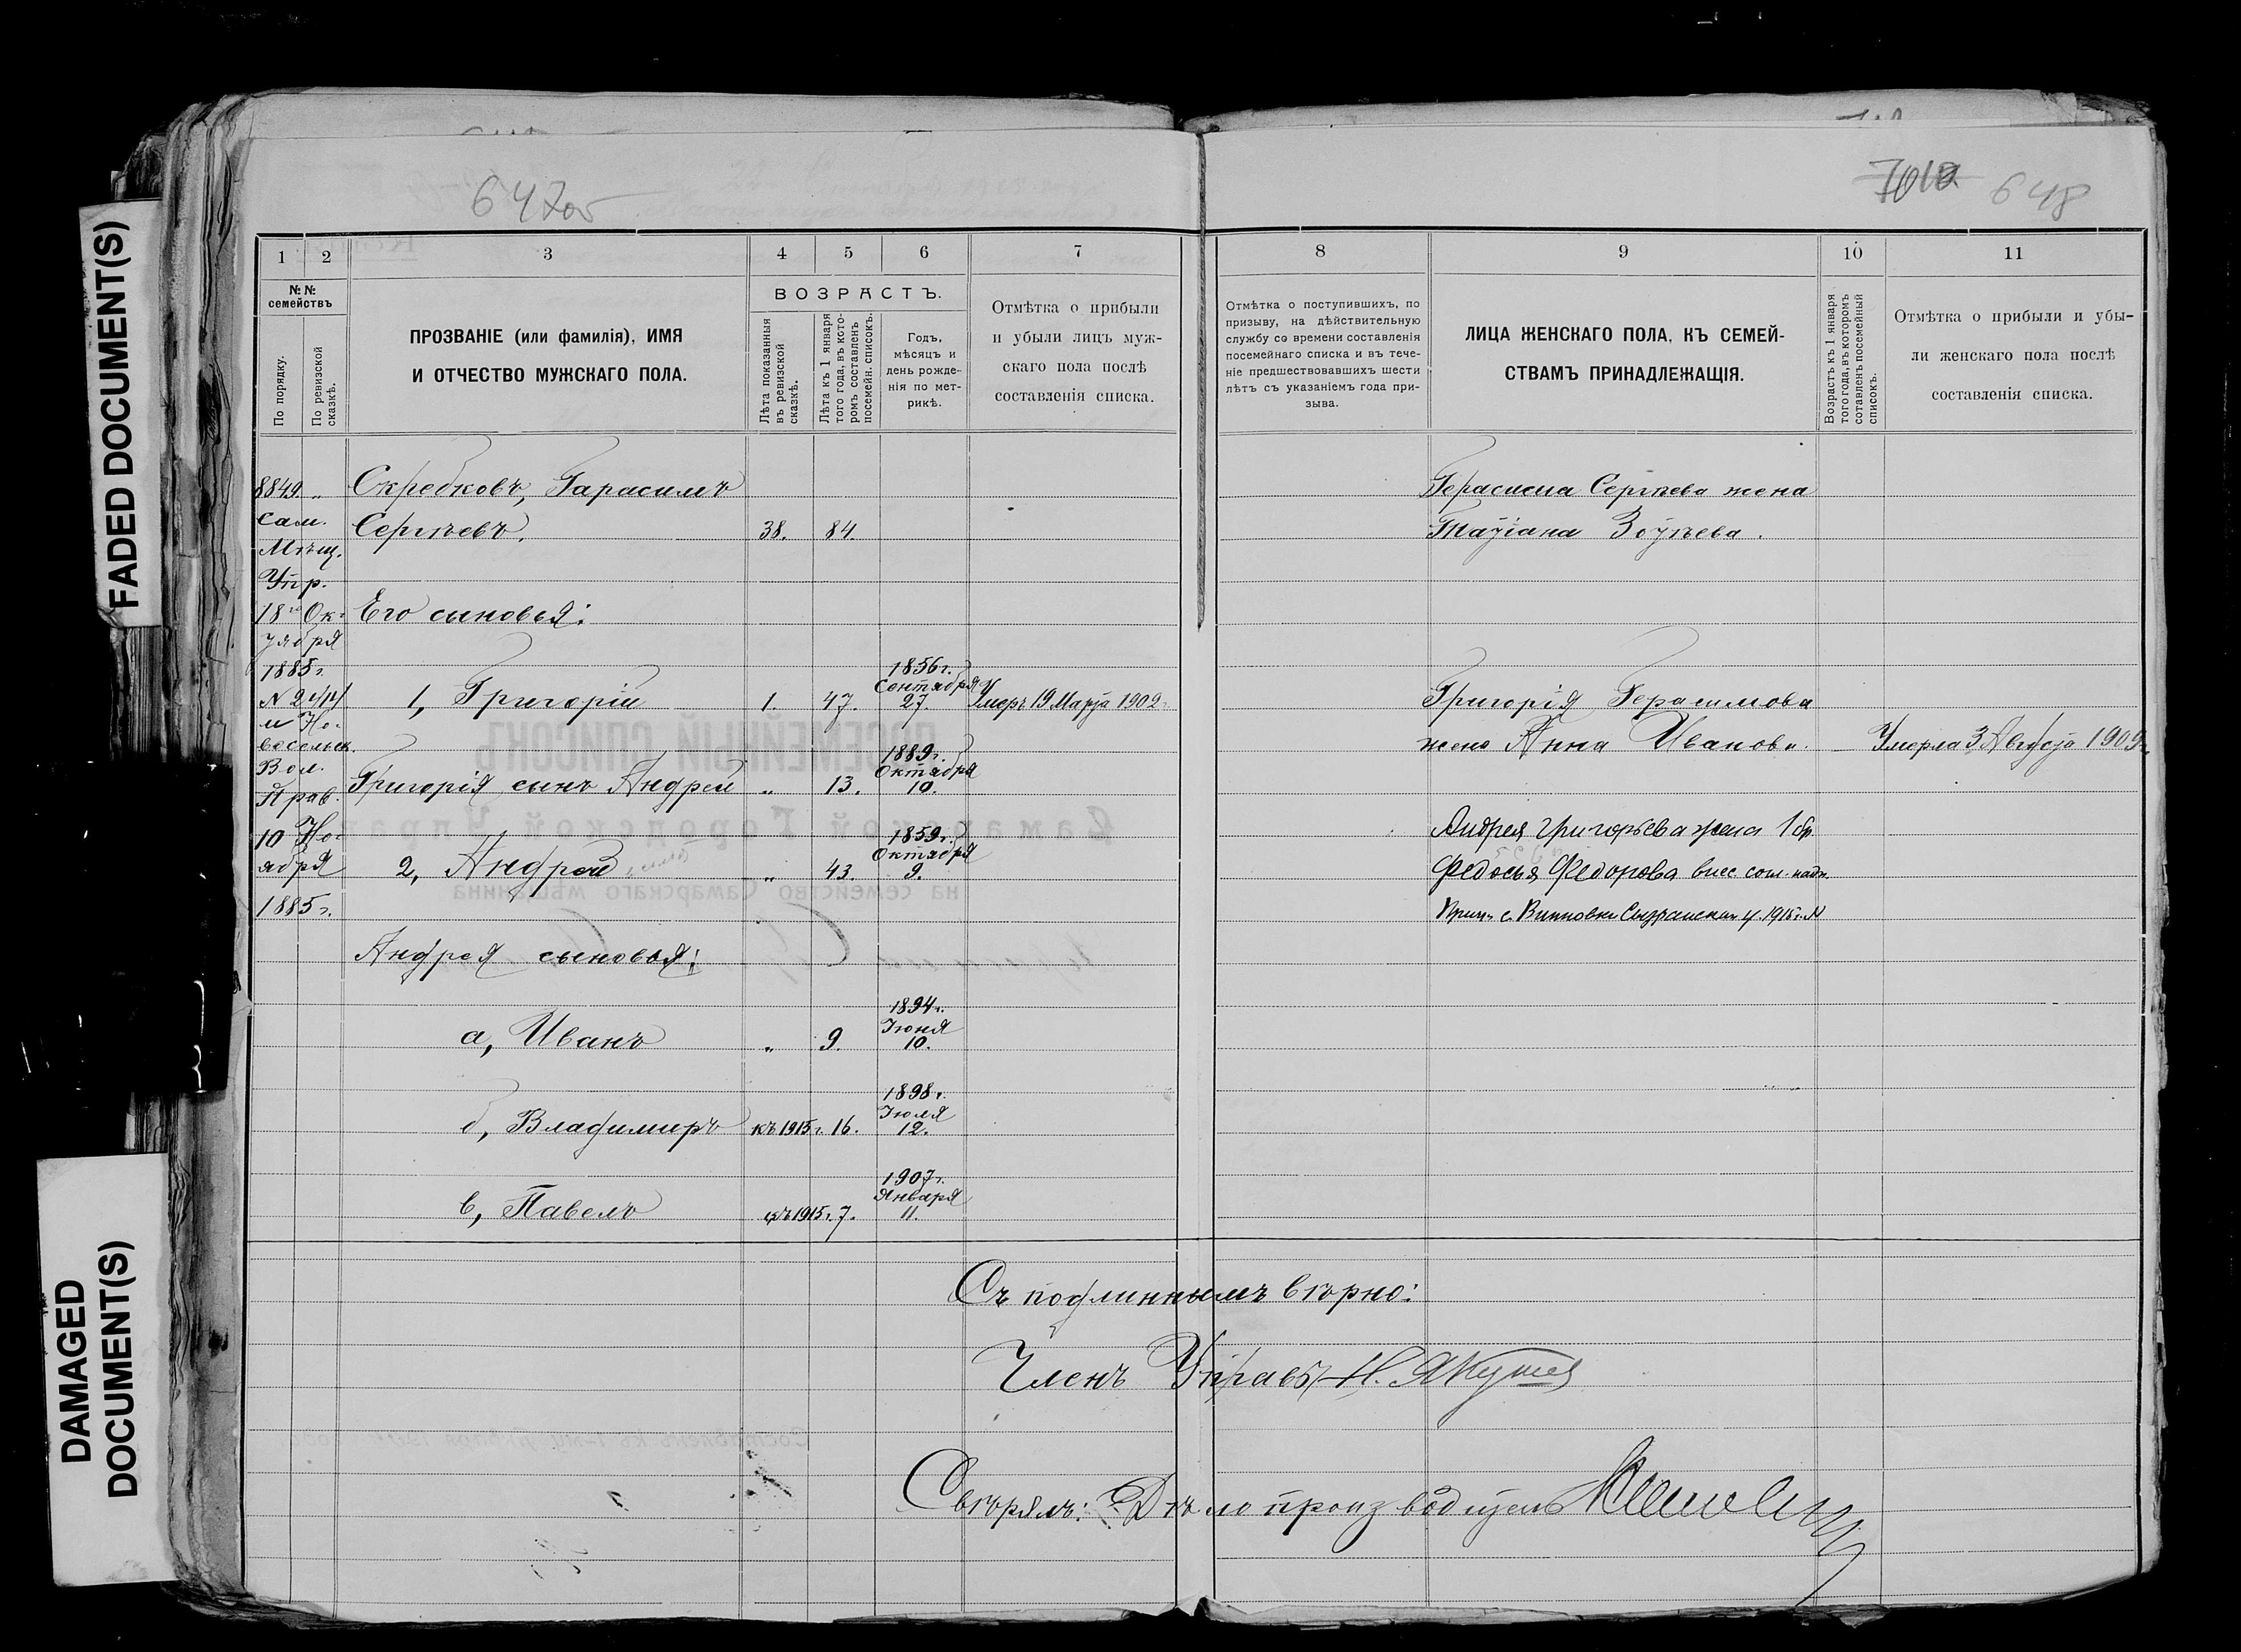 FADED DOCUMENT(S)
DAMAGED
DOCUMENT(S)
647 об
7010 648
1 2 3 4 5 6 7
№№
семействъ
По порядку.
По ревизской
сказкѣ.
ПРОЗВАНІЕ (или фамилія), ИМЯ
И ОТЧЕСТВО МУЖСКАГО ПОЛА.
ВОЗРАСТЪ.
Лѣта показанныя
въ ревизской
сказкѣ.
Лѣта къ 1 января
того года, въ кото-
ромъ составленъ
посемейн. списокъ.
Годъ,
мѣсяцъ и
день рожде-
нія по мет-
рикѣ.
Отмѣтка о прибыли
и убыли лицъ муж-
скаго пола послѣ
составленія списка.
8849 „ Скребковъ, Гарасимъ
Сам. Сергѣевъ. 38. 84.
Мѣщ.
Упр.
18го Ок- Его сыновья:
тября
1885 г. 1856 г.
Сентября
1, Григорій 1. 47. 27. Умеръ 19 Марта 1902 г.
и Но-
восельск. 1889 г.
Вол. Октября
Прав. Григорія сынъ Андрей „ 13. 10.
10 Но- 1859 г.
Октября
ября 2, Андрей „ 43. 9.
1885 г.
Андрея сыновья:
1894 г.
Іюня
а, Иванъ „ 9. 10.
1898 г.
Іюля
б, Владимиръ къ 1915 г. 16. 12.
1907 г.
Января
в, Павелъ къ 1915 г. 7. 11.
8 9 10 11
Отмѣтка о поступившихъ, по
призыву, на дѣйствительную
службу со времени составленія
посемейнаго списка и въ тече-
ніе предшествовавшихъ шести
лѣтъ съ указаніемъ года при-
зыва.
ЛИЦА ЖЕНСКАГО ПОЛА, КЪ СЕМЕЙ-
СТВАМЪ ПРИНАДЛЕЖАЩІЯ.
Возрастъ къ 1 января
того года, въ которомъ
сотавленъ посемейный
списокъ.
Отмѣтка о прибыли и убы-
ли женскаго пола послѣ
составленія списка.
Герасима Сергѣева жена
Татіана Зотѣева.
Григорія Герасимова
жена Анна Иванова. Умерла 3 Августа 1909 г.
Андрея Григорьева жена 1 бр.
Федосья Федорова внес. согл. надп.
Прич. с. Винновки Сызранскаго у. 1915 г. №
Съ подлиннымъ вѣрно:
Членъ Управы Н. Якушев
Свѣрялъ: Дѣлопроизводитель